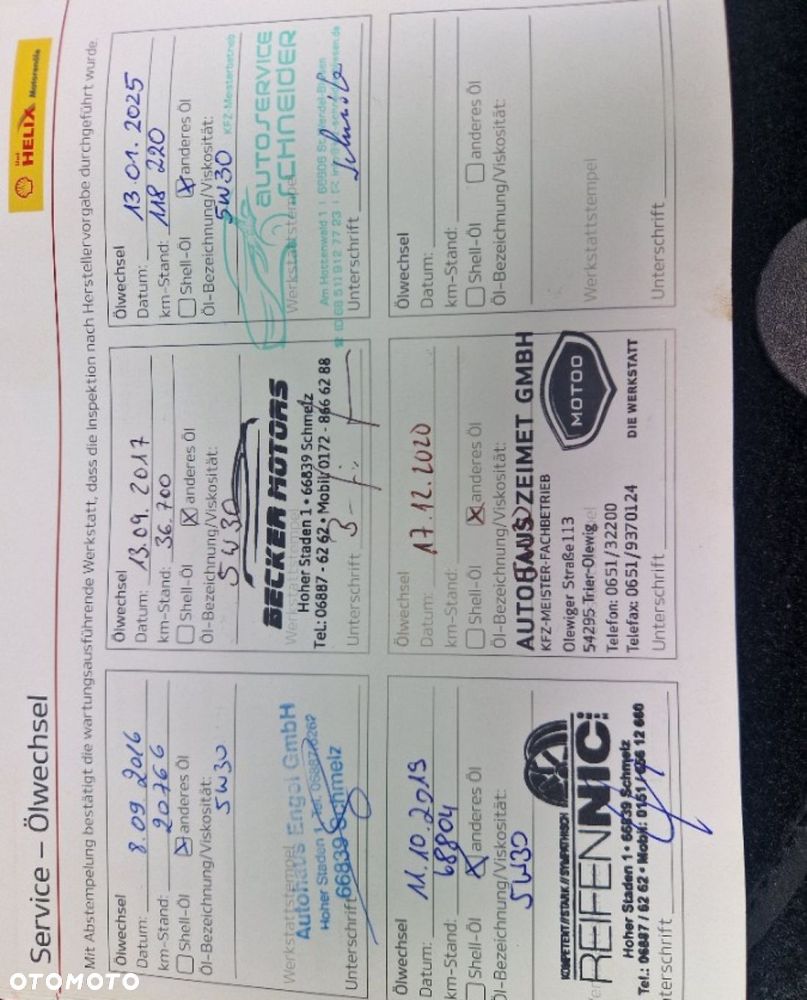 Service – Ölwechsel
Shell HELIX Motorenöle
Mit Abstempelung bestätigt die wartungsausführende Werkstatt, dass die Inspektion nach Herstellervorgabe durchgeführt wurde.
Ölwechsel
Datum: 8.09.2016
km-Stand: 20766
Shell-Öl anderes Öl
Öl-Bezeichnung/Viskosität:
5W30
Werkstattstempel
Autohaus Engel GmbH
Hoher Staden 1 Tel. 06887/6262
66839 Schmelz
Unterschrift
Ölwechsel
Datum: 13.09.2017
km-Stand: 36.700
Shell-Öl anderes Öl
Öl-Bezeichnung/Viskosität:
5W30
BECKER MOTORS
Werkstattstempel
Hoher Staden 1 • 66839 Schmelz
Tel.: 06887 - 62 62 • Mobil: 0172 - 866 62 88
Unterschrift
Ölwechsel
Datum: 13.01.2025
km-Stand: 118 220
Shell-Öl anderes Öl
Öl-Bezeichnung/Viskosität:
5W30
KFZ-Meisterbetrieb
AUTOSERVICE
SCHNEIDER
Werkstattstempel
Am Hottenwald 1 | 66606 St. Wendel
Unterschrift
Ölwechsel
Datum: 11.10.2019
km-Stand: 68804
Shell-Öl anderes Öl
Öl-Bezeichnung/Viskosität:
5W30
KOMPETENT//STARK//SYMPATHISCH
REIFENNIC:
Hoher Staden 1 • 66839 Schmelz
Tel.: 06887 / 62 62 • Mobil: 0151 / 12 660
Unterschrift
Ölwechsel
Datum: 17.12.2020
km-Stand:
Shell-Öl anderes Öl
Öl-Bezeichnung/Viskosität:
AUTOHAUS ZEIMET GMBH
KFZ-MEISTER-FACHBETRIEB
Olewiger Straße 113
54295 Trier-Olewig
Telefon: 0651/32200
Telefax: 0651/9370124
MOTOO
DIE WERKSTATT
Unterschrift
Ölwechsel
Datum:
km-Stand:
Shell-Öl anderes Öl
Öl-Bezeichnung/Viskosität:
Werkstattstempel
Unterschrift
OTOMOTO